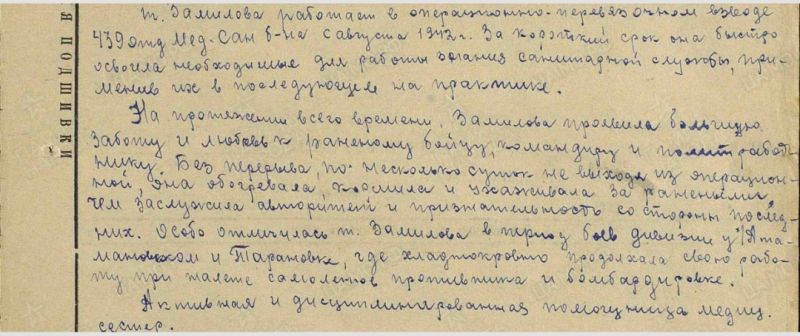 Я ПОДШИВКИ
т. Замилова работает в операционно-перевязочном взводе
439 отд Мед. Сан б-на с августа 1942 г. За короткий срок она быстро
освоила необходимые для работы знания санитарной службы, при-
менив их в последующем на практике.
На протяжении всего времени, Замилова проявила большую
заботу и любовь к раненому бойцу, командиру и политработ-
нику. Без перерыва, по несколько суток не выходя из операцион-
ной, она обогревала, кормила и ухаживала за ранеными
чем заслужила авторитет и признательность со стороны послед-
них. Особо отличилась т. Замилова в период боев дивизии у Ата-
мановском и Тарановке, где хладнокровно продолжала свою рабо-
ту при налете самолетов противника и бомбардировке.
Активная и дисциплинированная помощница медиц.
сестер.